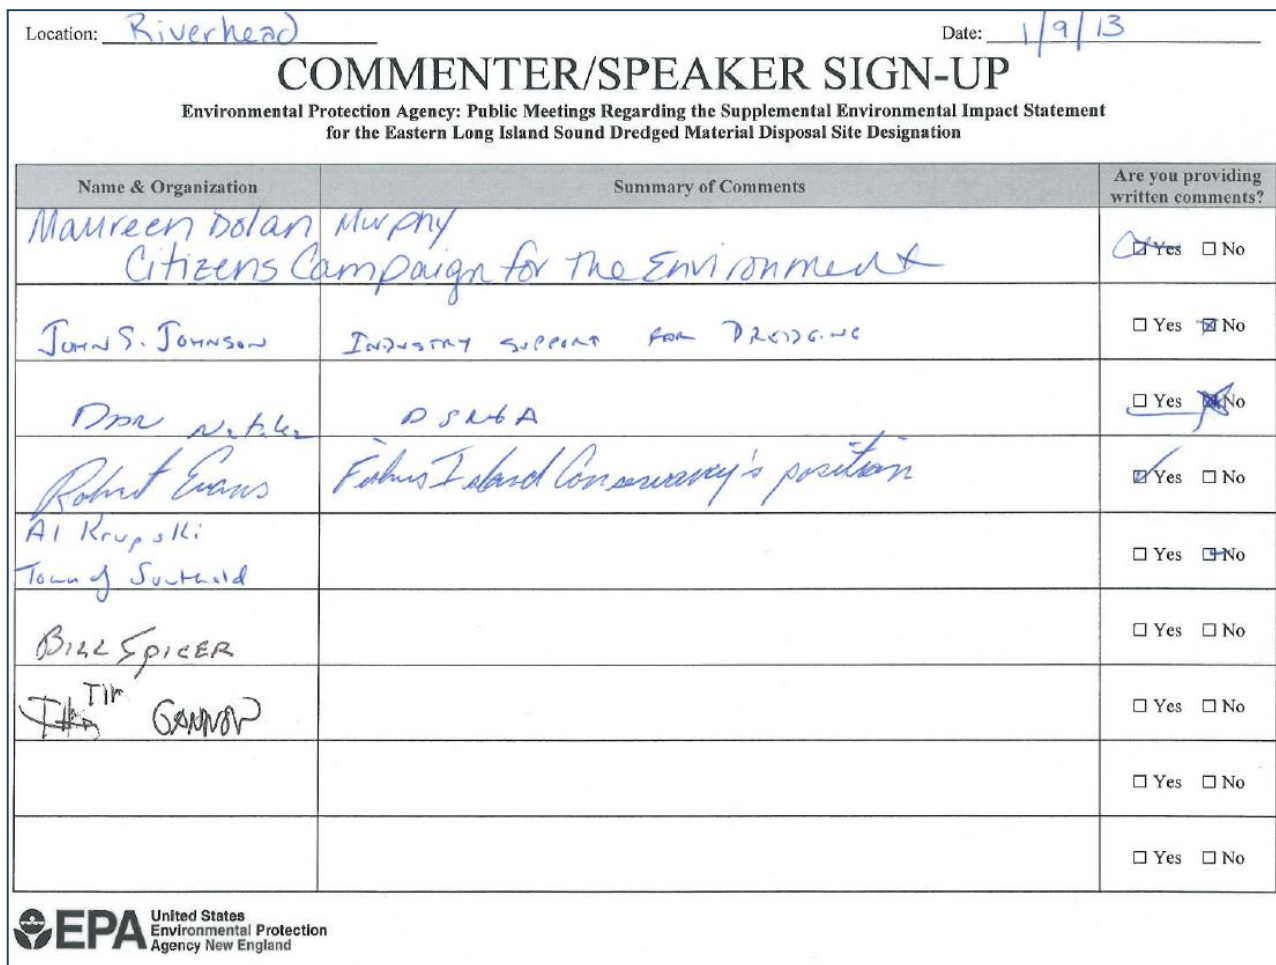 Location: Riverhead Date: 1/9/13
COMMENTER/SPEAKER SIGN-UP
Environmental Protection Agency: Public Meetings Regarding the Supplemental Environmental Impact Statement
for the Eastern Long Island Sound Dredged Material Disposal Site Designation
Name & Organization Summary of Comments Are you providing
written comments?
Maureen Dolan Murphy
Citizens Campaign for the Environment ☑ Yes ☐ No
John S. Johnson Industry support for Dredging ☐ Yes ☒ No
☐ Yes ☒ No
Robert Evans Fishers Island Conservancy's position ☑ Yes ☐ No
Al Krupski
Town of Southold ☐ Yes ☑ No
Bill Spicer ☐ Yes ☐ No
Tim GANNON ☐ Yes ☐ No
☐ Yes ☐ No
☐ Yes ☐ No
EPA United States
Environmental Protection
Agency New England